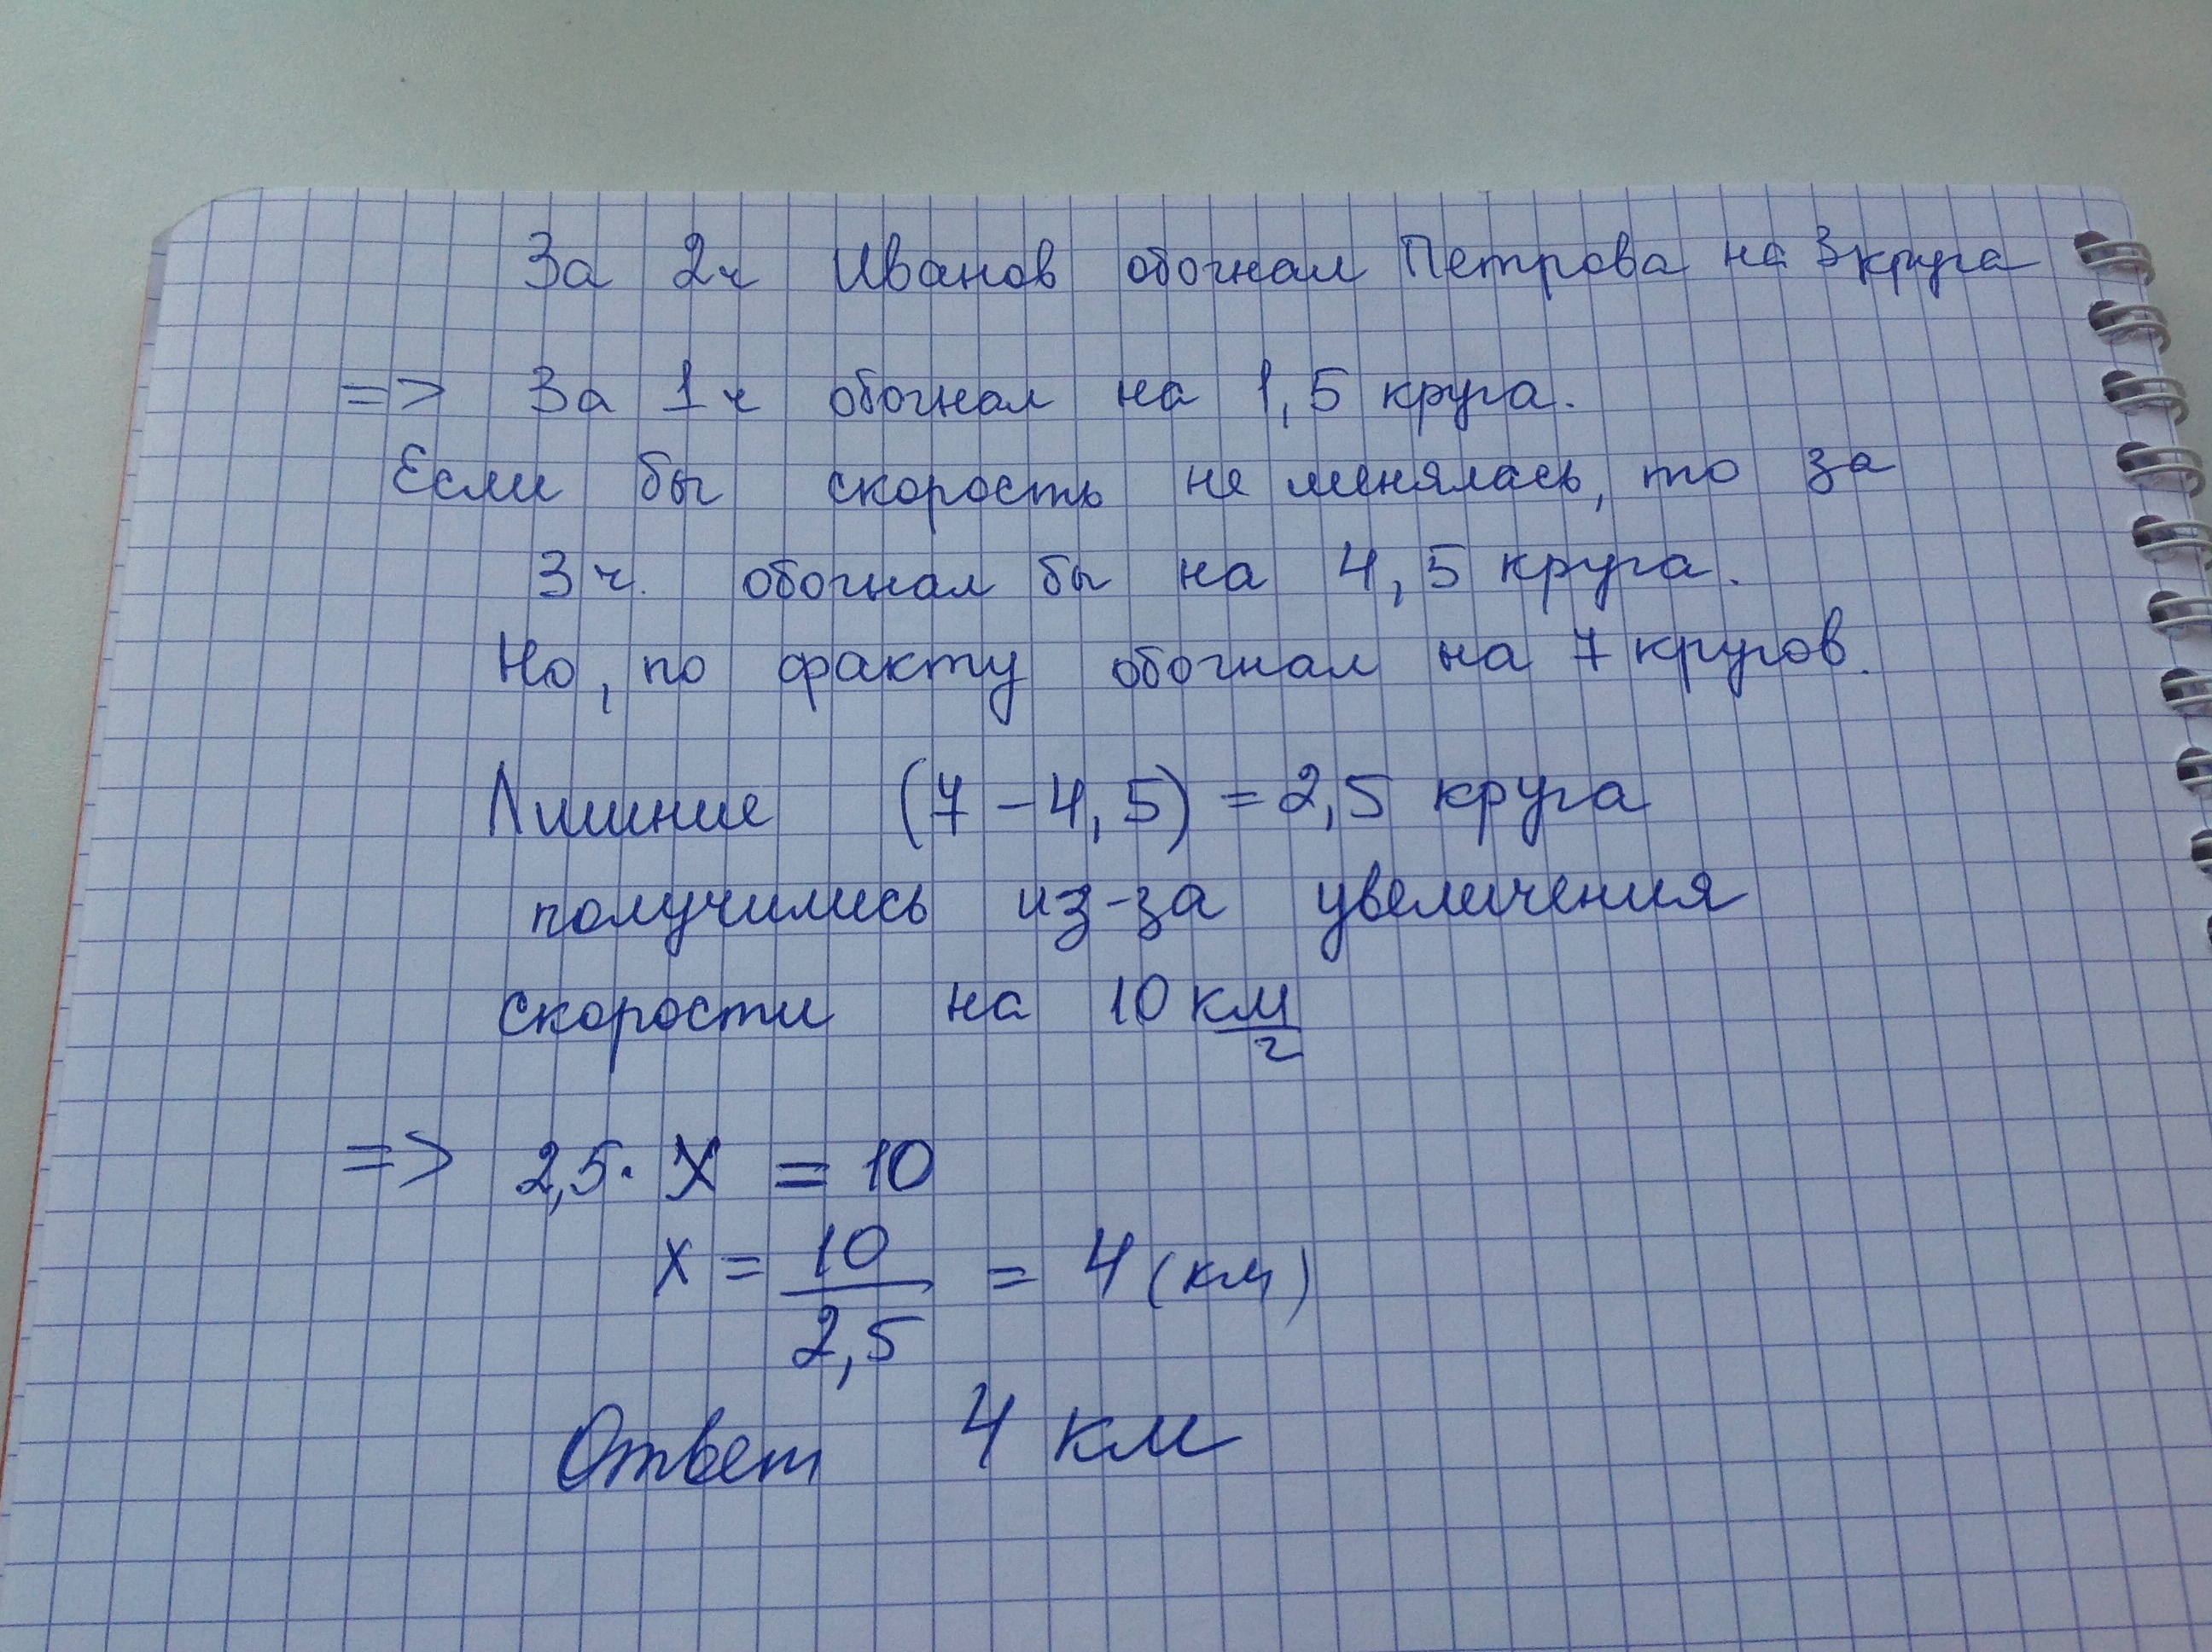 За 2ч Иванов обогнал Петрова на 3 круга
=> За 1ч обогнал на 1,5 круга.
Если бы скорость не менялась, то за
3ч. обогнал бы на 4,5 круга.
Но, по факту обогнал на 7 кругов.
Лишние (7 - 4,5) = 2,5 круга
получились из-за увеличения
скорости на 10 км/ч
=> 2,5 · x = 10
x = 10/2,5 = 4 (км)
Ответ 4 км